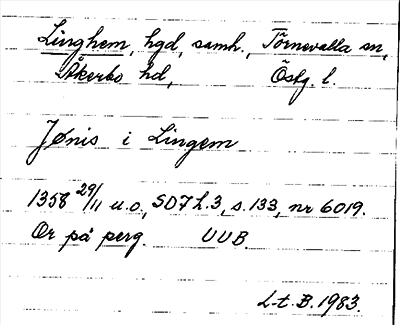 Linghem, hgd, samh., Törnevalla sn,
Åkerbo hd, Östg. l.
Jønis i Lingem
1358 29/11 u.o., SD7 h.3, s.133, nr 6019.
Or på perg. UUB
L-t. B. 1983.